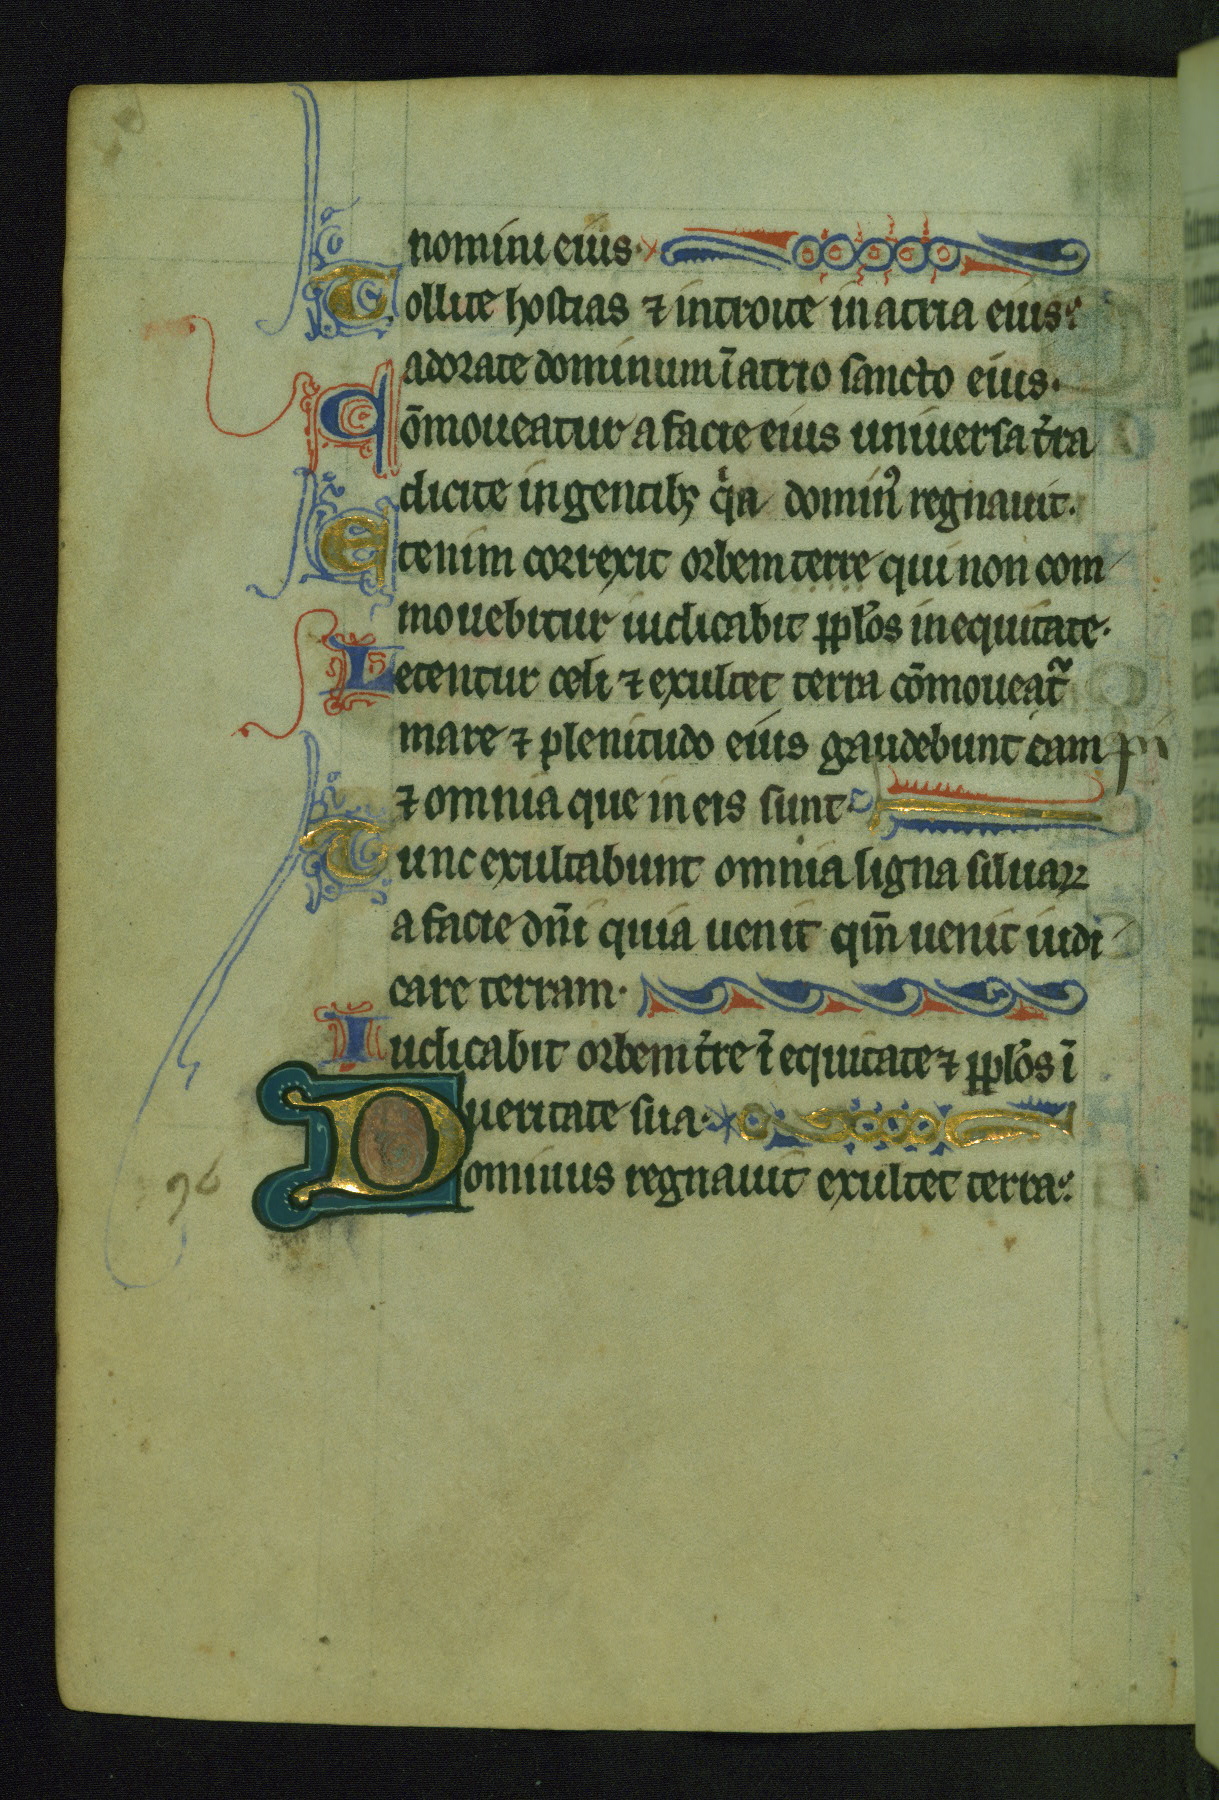 nomini eius·
Tollite hostias ⁊ introite in atria eius:
adorate dominum ī atrio sancto eius·
Cōmoueatur a facie eius uniuersa t̓ra
dicite in gentibꝫ qͥa dominꝰ regnauit·
Etenim correxit orbem terre qui non com
mouebitur iudicabit pp̄los in equitate·
Letentur celi ⁊ exultet terra cōmoueat᷑
mare ⁊ plenitudo eius gaudebunt cam pi
⁊ omnia que in eis sunt·
Tunc exultabunt omnia ligna siluaꝝ
a facie dn̄i quia uenit qm̄ uenit iudi
care terram·
Iudicabit orbem t̓re ī equitate ⁊ pp̄los ī
ueritate sua·
Dominus regnauit exultet terra:
96